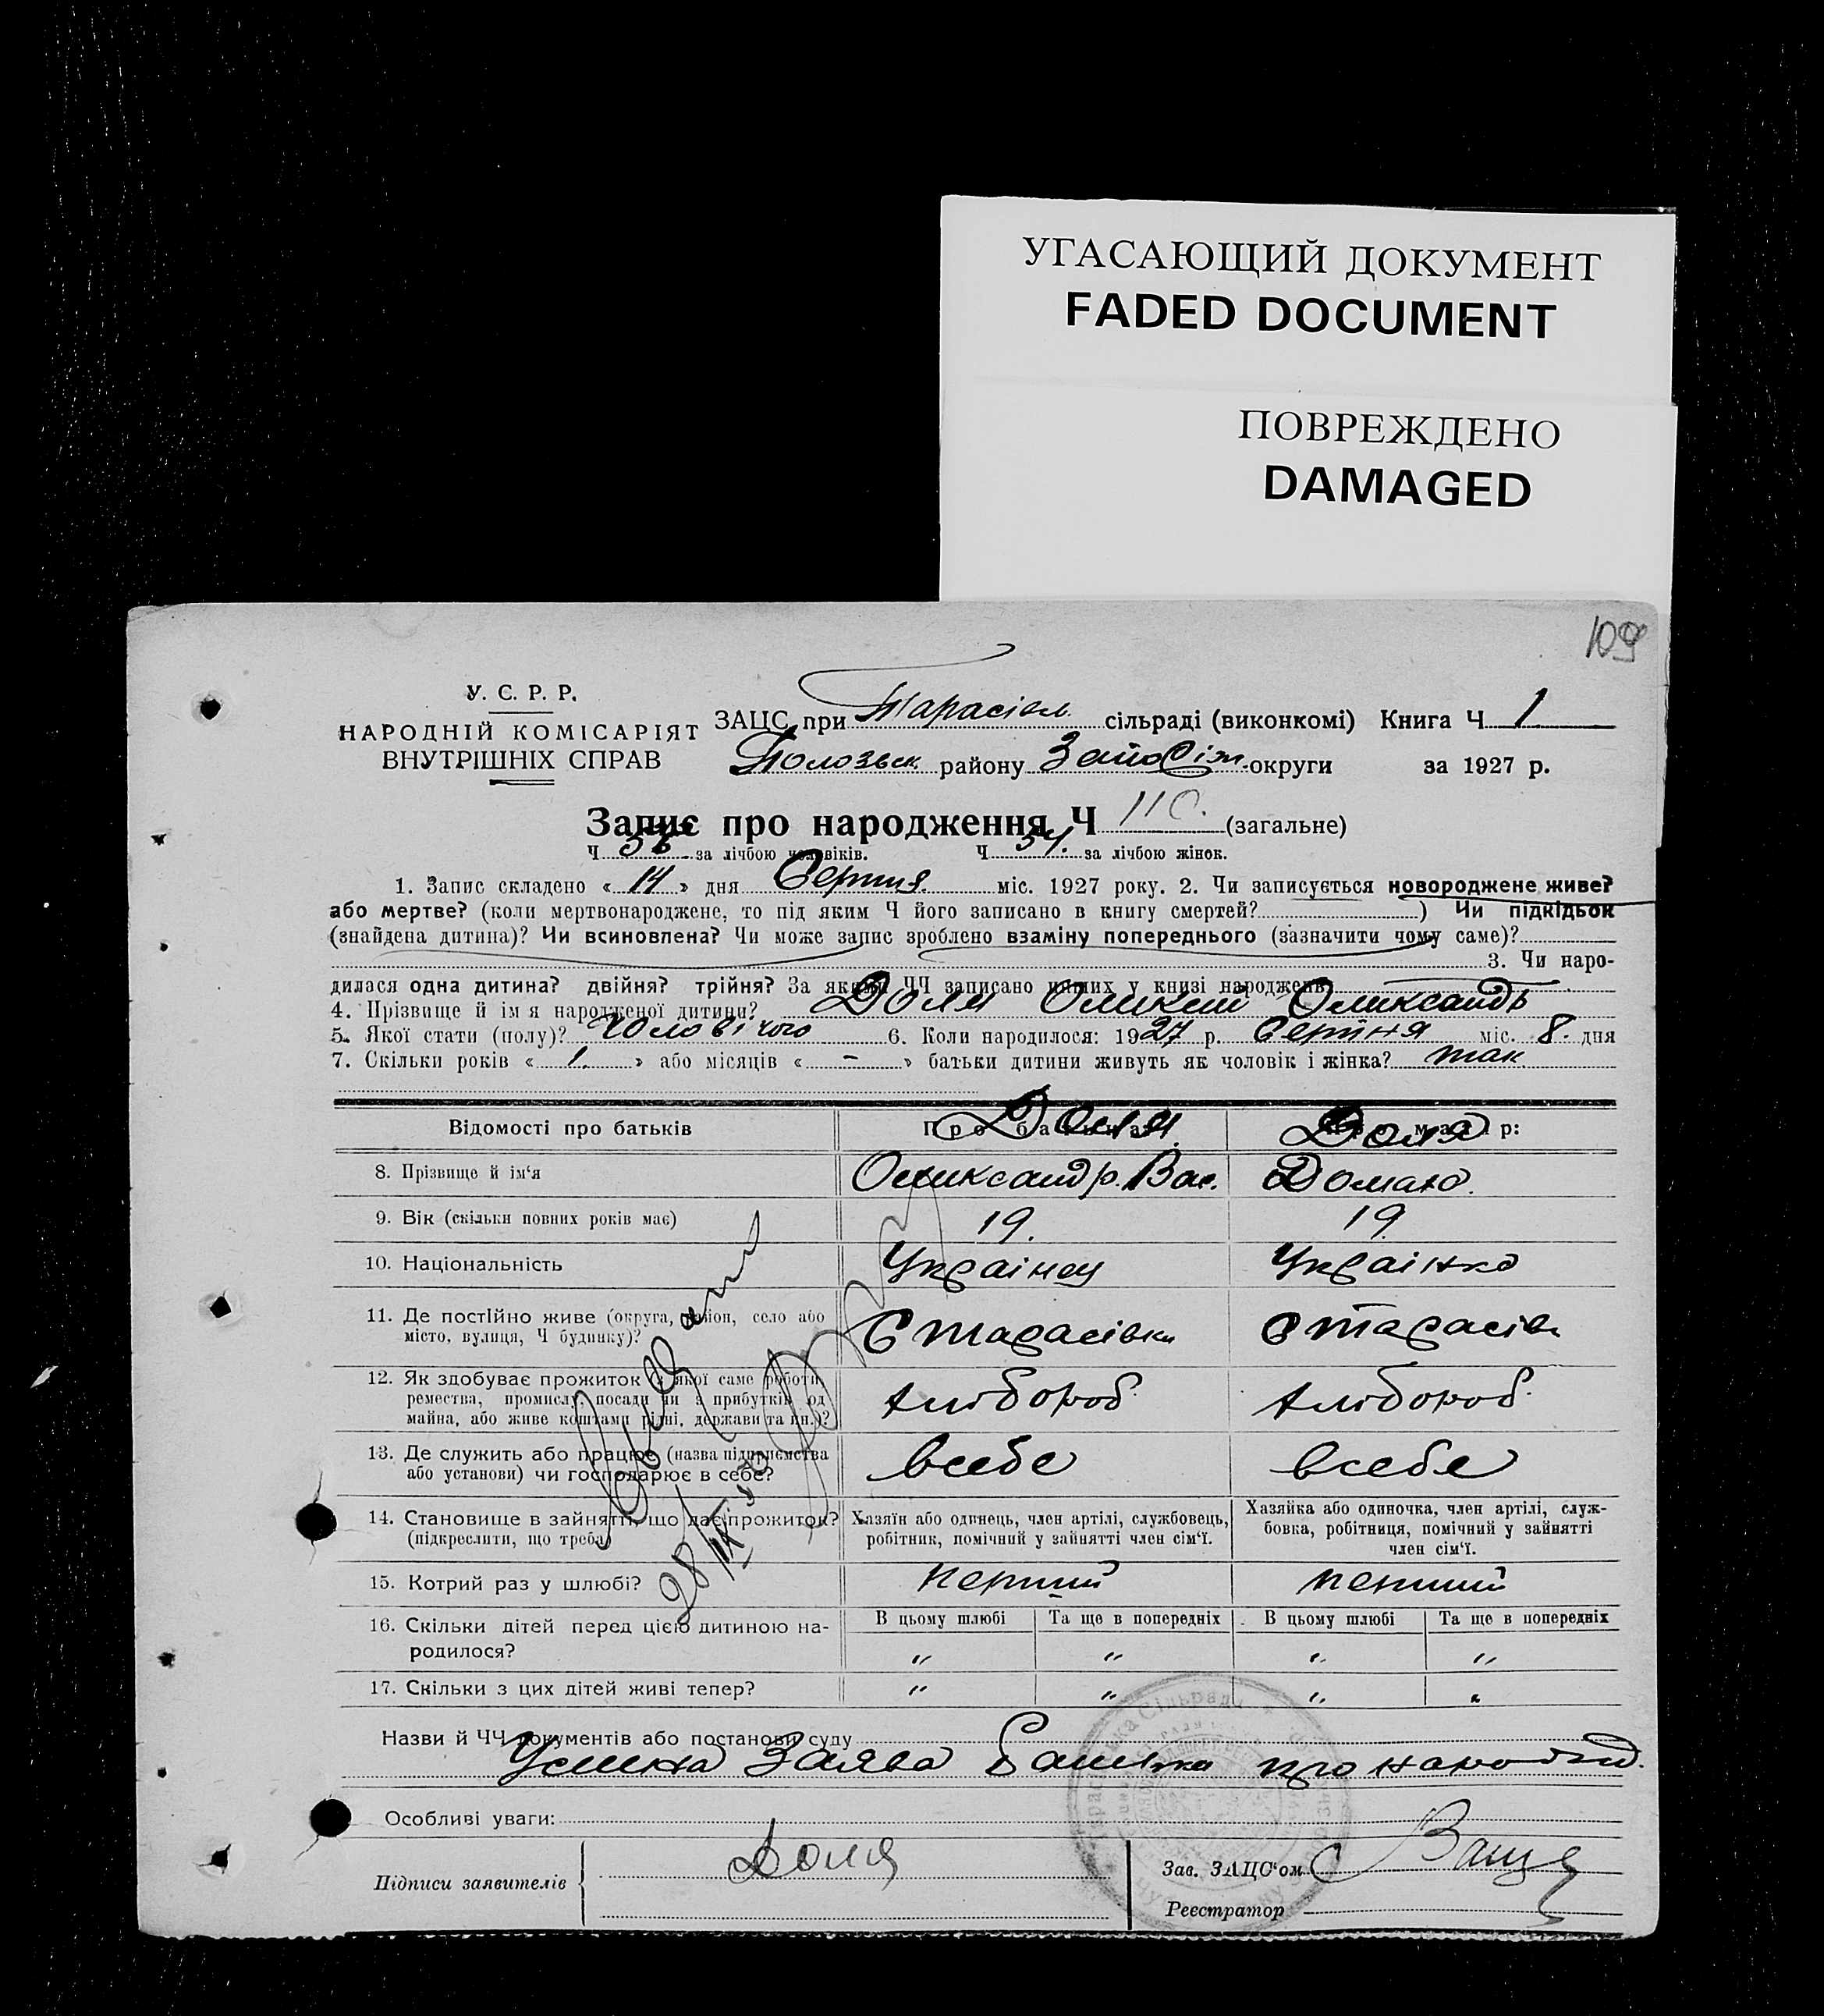 УГАСАЮЩИЙ ДОКУМЕНТ
FADED DOCUMENT
ПОВРЕЖДЕНО
DAMAGED
109
У. С. Р. Р.
НАРОДНІЙ КОМІСАРІЯТ
ВНУТРІШНІХ СПРАВ
ЗАЦС при Тарасівск. сільраді (виконкомі) Книга Ч 1
Полозьск. району Запоріж. округи за 1927 р.
Запис про народження Ч 110. (загальне)
Ч 56 за лічбою чоловіків. Ч 54. за лічбою жінок.
1. Запис складено « 14 » дня Серпня міс. 1927 року. 2. Чи записується новороджене живе?
або мертве? (коли мертвонароджене, то під яким Ч його записано в книгу смертей? ) Чи підкідьок
(знайдена дитина)? Чи всиновлена? Чи може запис зроблено взаміну попереднього (зазначити чому саме)?
3. Чи наро-
дилася одна дитина? двійня? трійня? За якими ЧЧ записано инших у книзі народжень
4. Прізвище й ім я народженої дитини? Доля Оликсій Оликсандр
5. Якої стати (полу)? Чоловічого 6. Коли народилося: 1927 р. Серпня міс. 8. дня
7. Скільки років « 1. » або місяців « - » батьки дитини живуть як чоловік і жінка? так
Відомості про батьків Про батька: Доля Про матір: Доля
8. Прізвище й ім‘я Оликсандр. Вас. Домаха.
9. Вік (скільки повних років має) 19. 19
10. Національність Українец Українка
11. Де постійно живе (округа, район, село або
місто, вулиця, Ч будинку)? С Тарасівки С Тарасівк
12. Як здобуває прожиток (з якої саме роботи,
ремества, промислу, посади чи з прибутків од
майна, або живе коштами рідні, держави та ин.)? хлібороб хлібороб
13. Де служить або працює (назва підприємства
або установи) чи господарює в себе? всебе всебе
14. Становище в зайнятті, що дає прожиток?
(підкреслити, що треба)
Хазяїн або одинець, член артілі, службовець,
робітник, помічний у зайнятті член сім‘ї.
Хазяйка або одиночка, член артілі, служ-
бовка, робітниця, помічний у зайнятті
член сім‘ї.
15. Котрий раз у шлюбі? перший перший
16. Скільки дітей перед цією дитиною на-
родилося?
В цьому шлюбі Та ще в попередніх В цьому шлюбі Та ще в попередніх
" " " "
17. Скільки з цих дітей живі тепер? " " " "
Назви й ЧЧ документів або постанови суду
Усина Заява Батька про народжд.
Особливі уваги:
Підписи заявителів Доля
Зав. ЗАЦС‘ом
Реєстратор